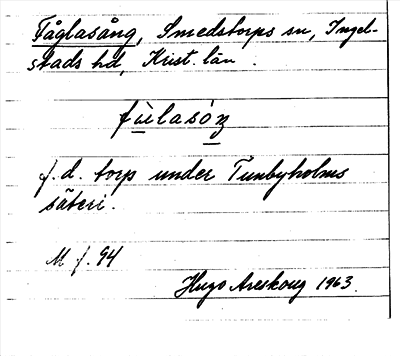 Fåglasång, Smedstorps sn, Ingel-
stads hd, Krist. län.
fùlasóŋ
f.d. torp under Tunbyholms
säteri.
M f. 94
Hugo Areskoug 1963.